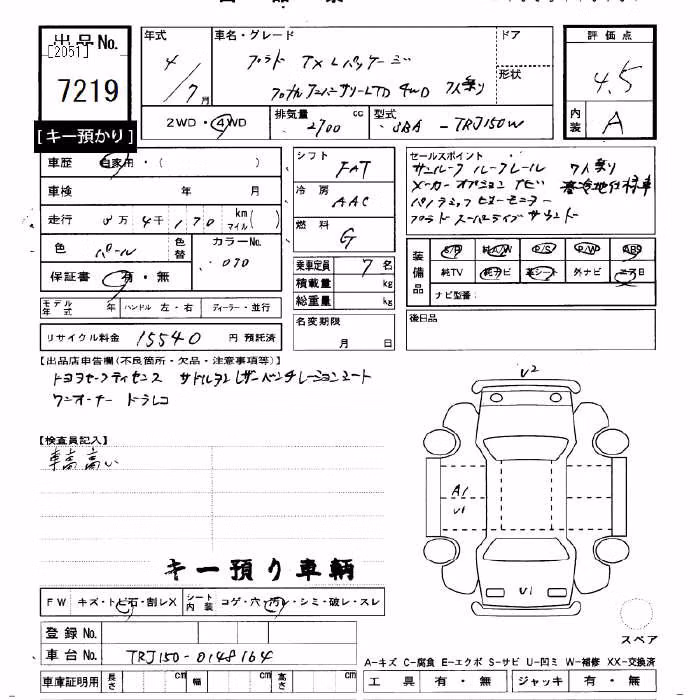 出品No.
[2051]
7219
[キー預かり]
年式
4/7月
車名・グレード
プラド TX Lパッケージ
70thアニバーサリーLTD 4WD 7人乗り
ドア
形状
評価点
4.5
内装
A
2WD・4WD
排気量 2700 cc
型式 CBA-TRJ150W
車歴 自家用・( )
車検 年 月
走行 万 4千 170 km マイル( )
色 パール
色替
カラーNo. 070
保証書 有・無
シフト FAT
冷房 AAC
燃料 G
乗車定員 7名
積載量 kg
総重量 kg
セールスポイント
サンルーフ ルーフレール 7人乗り
メーカーオプションナビ 寒冷地仕様車
パノラミックビューモニター
プラド スーパーライブサウンド
装備品
S/R 純A/W P/S P/W ABS
純TV 純ナビ 革シート 外ナビ エアB
ナビ型番:
モデル年式 年 ハンドル 左・右 ディーラー・並行
リサイクル料金 15540 円 預託済
名変期限
月 日
後日品
【出品店申告欄(不良箇所・欠品・注意事項等)】
トヨタセーフティセンス サドルタンレザーベンチレーションシート
ワンオーナー ドラレコ
【検査員記入】
車高高い
キー預り車輌
FW キズ・トビ石・割レX
シート内装 コゲ・穴・汚レ・シミ・破レ・スレ
登録No.
車台No. TRJ150-0148164
車庫証明用 長さ cm 幅 cm 高さ cm
U2
A1
U1
U1
スペア
A-キズ C-腐食 E-エクボ S-サビ U-凹ミ W-補修 XX-交換済
工具 有・無 ジャッキ 有・無